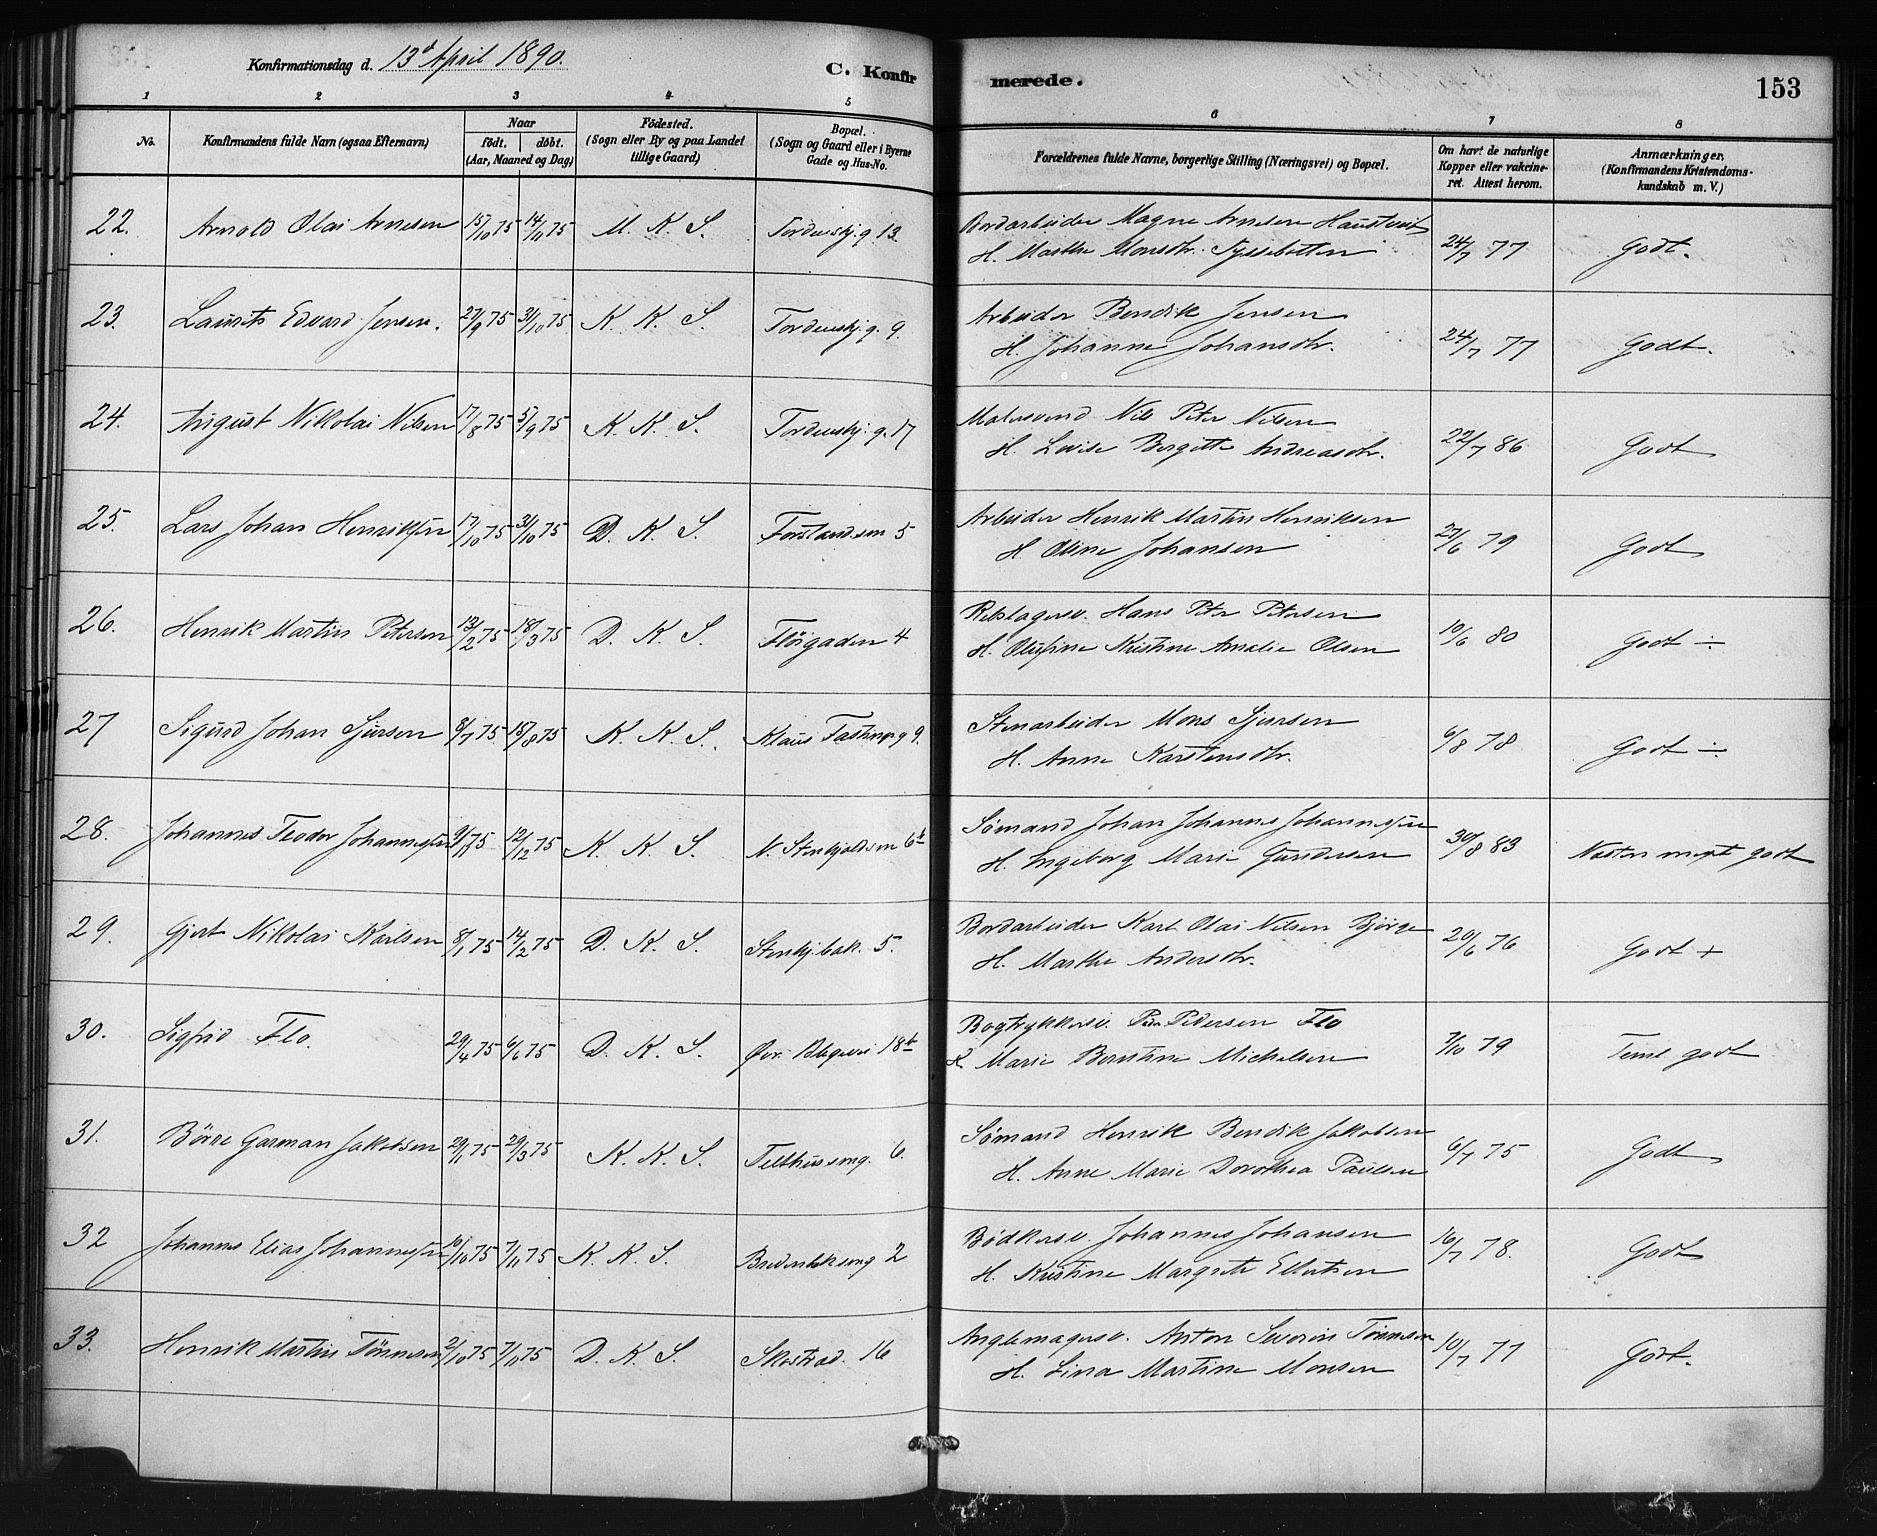 Konfirmationsdag d. 13d April 1890.
C. Konfir merede. 153
1 2 3 4 5 6 7 8
No. Konfirmandens fulde Navn (ogsaa Efternavn) Naar födt. döbt. (Aar, Maaned og Dag) Födested. (Sogn eller By og paa Landet tillige Gaard) Bopæl. (Sogn og Gaard eller i Byerne Gade og Hus-No. Forældrenes fulde Navne, borgerlige Stilling (Næringsvei) og Bopæl. Om havt de naturlige Kopper eller vakcineret. Attest herom. Anmærkninger, (Konfirmandens Kristendomskundskab m. V.)
22. Arnold Olai Arnesen 15/10 75 14/11 75 M. K. S. Tordenskj.g 13 Bordarbeider Magne Arnesen
H. Marthe Monsdtr. 24/7 77 Godt.
23. Laurits Edvard Jensen. 27/9 75 31/10 75 K. K. S. Tordenskj. g. 9. Arbeider Bendik Jensen
H. Johanne Johansdtr. 24/7 77 Godt.
24. August Nikolai Nilsen 17/8 75 5/9 75 K. K. S. Tordenskj. g. 17 Malersvend Nils Peter Nilsen
H. Lovise Bergitte Andreasdtr. 22/7 86 Godt
25. Lars Johan Henriksen 17/10 75 31/10 75 D. K. S. Forstandssm 5 Arbeider Henrik Martin Henriksen
H. Oline Johansen 27/6 79 Godt
26. Henrik Martin Petersen 13/2 75 18/3 75 D. K. S. Fløigaden 4 Rebslagersv. Hans Peter Petersen
H. Olufine Kristine Amalie Olsen 10/6 80 Godt ÷
27 Sigurd Johan Sjursen 8/7 75 15/8 75 K. K. S. Klaus Fastingsg 9. Stenarbeider Mons Sjursen
H. Anne Karstensdtr. 6/8 78 Godt ÷
28. Johannes Teodor Johannesen 9/11 75 12/12 75 K. K. S. N. Stenkjeldsm 6b Sømand Johan Johannes Johannesen
H. Ingeborg Marie Gundersen 30/8 83 Næsten meget godt
29. Gjert Nikolai Karlsen 8/1 75 14/2 75 D. K. S. Stenkj.bak. 5. Bordarbeider Karl Olai Nilsen Bjørge
H. Marthe Andersdtr. 20/6 76 Godt +
30. Sigfrid Flo. 29/4 75 6/6 75 D. K. S. Øvr. Blegevei 18b Bogtrykkersv. Peder Pedersen Flo
H. Marie Berntine Michelsen 7/10 79 Teml godt
31. Børre Garman Jakobsen 29/1 75 29/3 75 K. K. S. Telthussmg. 6. Sømand Henrik Bendik Jakobsen
H. Anne Marie Dorothea Paulsen 6/7 75 Godt
32 Johannes Elias Johannesen 10/10 75 7/11 75 K. K. S. Bredenbeksmg 2 Bødkersv. Johannes Johansen
H. Kristine Margrete Ellertsen 16/7 78. Godt
33. Henrik Martin Tønnesen 2/10 75 7/11 75 D. K. S. Skostræd. 16 Anglemagersv. Anton Severin Tønnesen
H. Lina Martine Monsen 10/7 77 Godt.